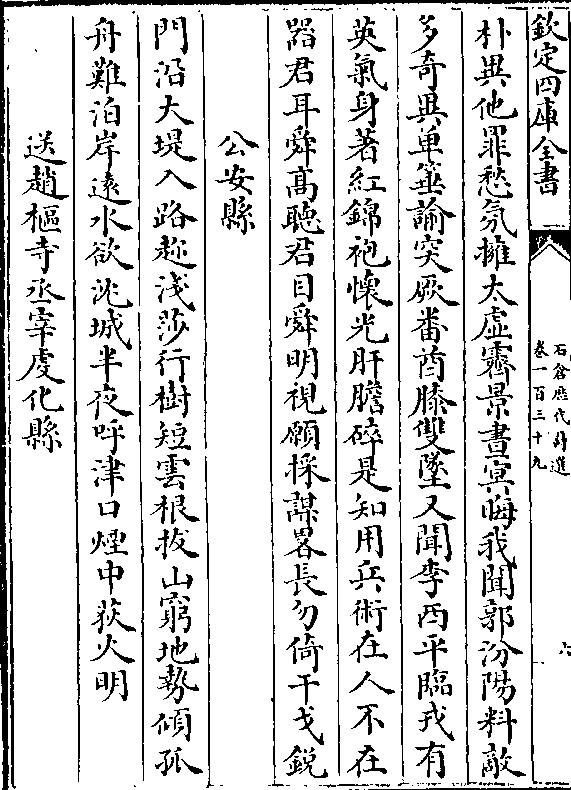 欽定四庫全書
石倉歷代詩選
卷一百三十九
六
朴異他罪愁氛擁太虛霽景晝冥晦我聞郭汾陽料敵
多奇異單華諭突厥番酋膝雙墜又聞李西平臨戎有
英氣身著紅錦袍懷光肝膽碎是知用兵術在人不在
器君耳舜髙聴君目舜明視願採謀畧長勿倚干戈鋭
公安縣
門沿大堤入路趂淺莎行樹短雲根拔山窮地勢傾孤
舟難泊岸逺水欲沈城半夜呼津口煙中荻火明
送趙樞寺丞宰虔化縣